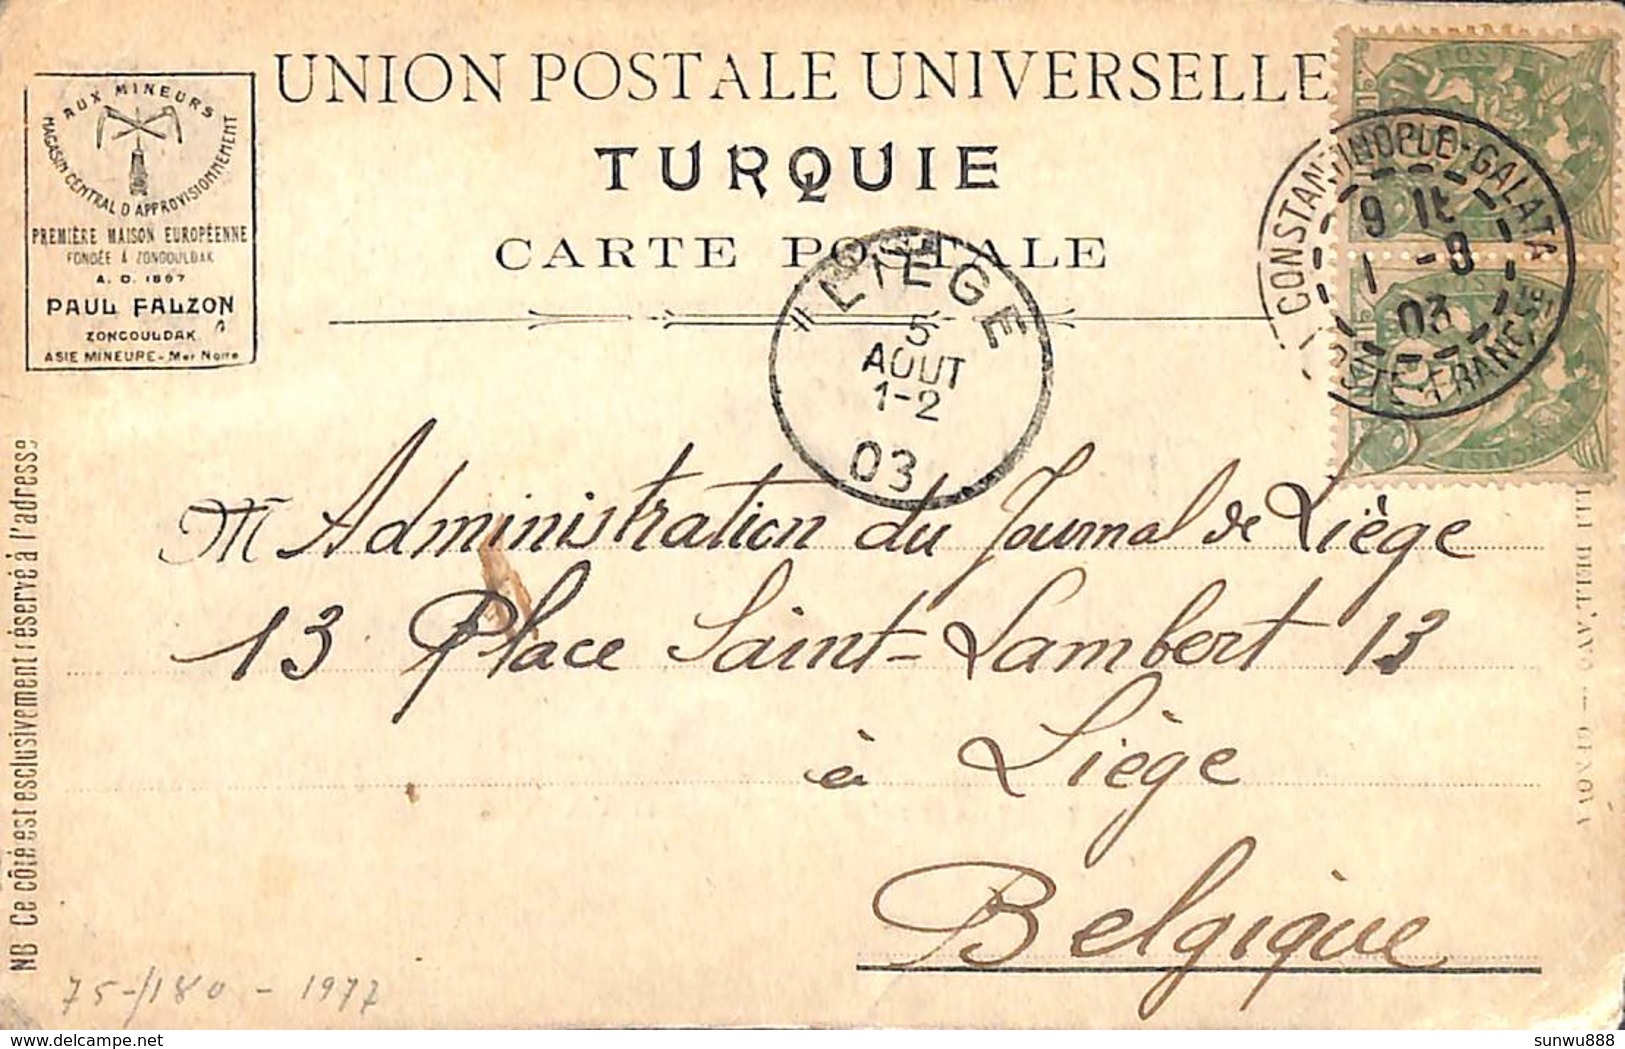 UNION POSTALE UNIVERSELLE
TURQUIE
CARTE POSTALE
AUX MINEURS
MAGASIN CENTRAL D'APPROVISIONNEMENT
PREMIÈRE MAISON EUROPÉENNE
FONDÉE À ZONGOULDAK
A. D. 1897
PAUL FALZON
ZONGOULDAK
ASIE MINEURE - Mer Noire
CONSTANTINOPLE-GALATA
1 -8
03
POSTE FRANÇSE
LIÈGE
5
AOUT
1-2
03
M Administration du Journal de Liège
13 Place Saint-Lambert 13
à Liège
Belgique
NB Ce côté est esclusivement réservé à l'adresse
DELL'AVO — GENOVA
75-/180 - 1977
sunwu888